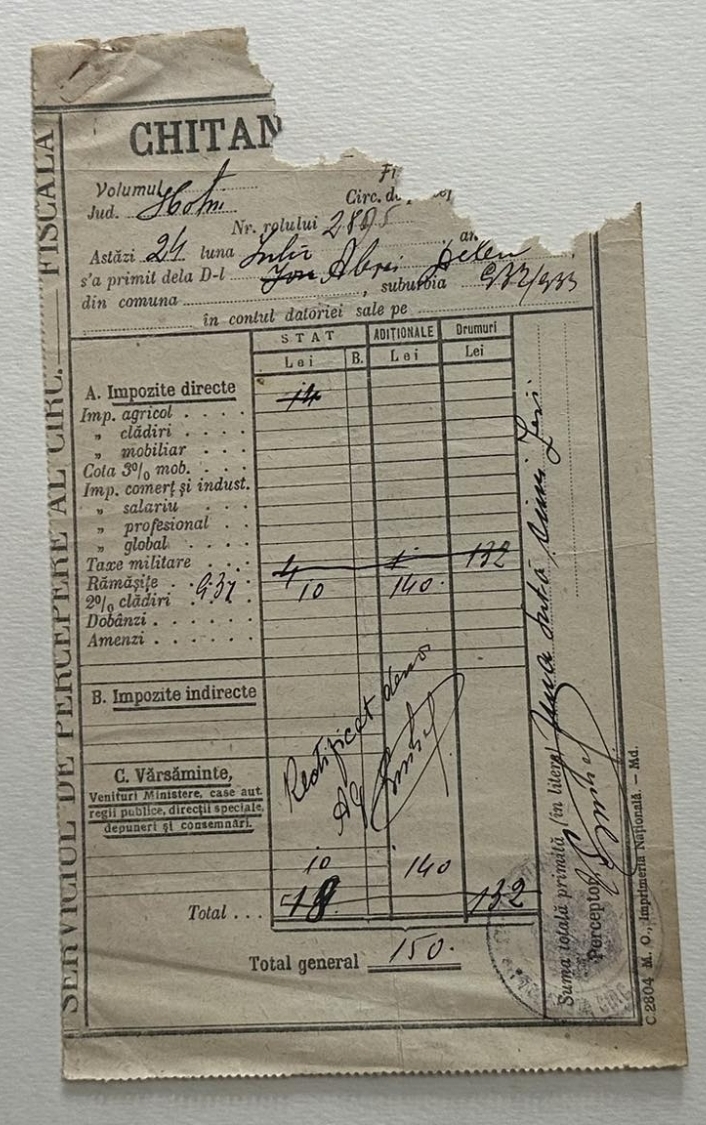 CHITAN
Volumul
Jud. Hotin Circ. de
Nr. rolului 2885
Astăzi 24 luna Iulie
s'a primit dela D-l Ion
din comuna , suburbia 932/933
în contul datoriei sale pe
STAT ADIȚIONALE Drumuri
Lei B. Lei Lei
A. Impozite directe 14
Imp. agricol
„ clădiri
„ mobiliar
Cota 3% mob.
Imp. comerț și indust.
„ salariu
„ profesional
„ global
Taxe militare 4 1 132
Rămășițe 931 10 140.
2% clădiri
Dobânzi
Amenzi
B. Impozite indirecte
Rectificat
C. Vărsăminte,
Venituri Ministere, case aut.
regii publice, direcții speciale,
depuneri și consemnări.
10 140
Total . . . 18 132
Total general 150.
SERVICIUL DE PERCEPERE AL CIRC. FISCALA
Suma totală primită (în litere) Una sută cinci zeci
Perceptor
C. 2804 M. O., Imprimeria Națională. — Md.